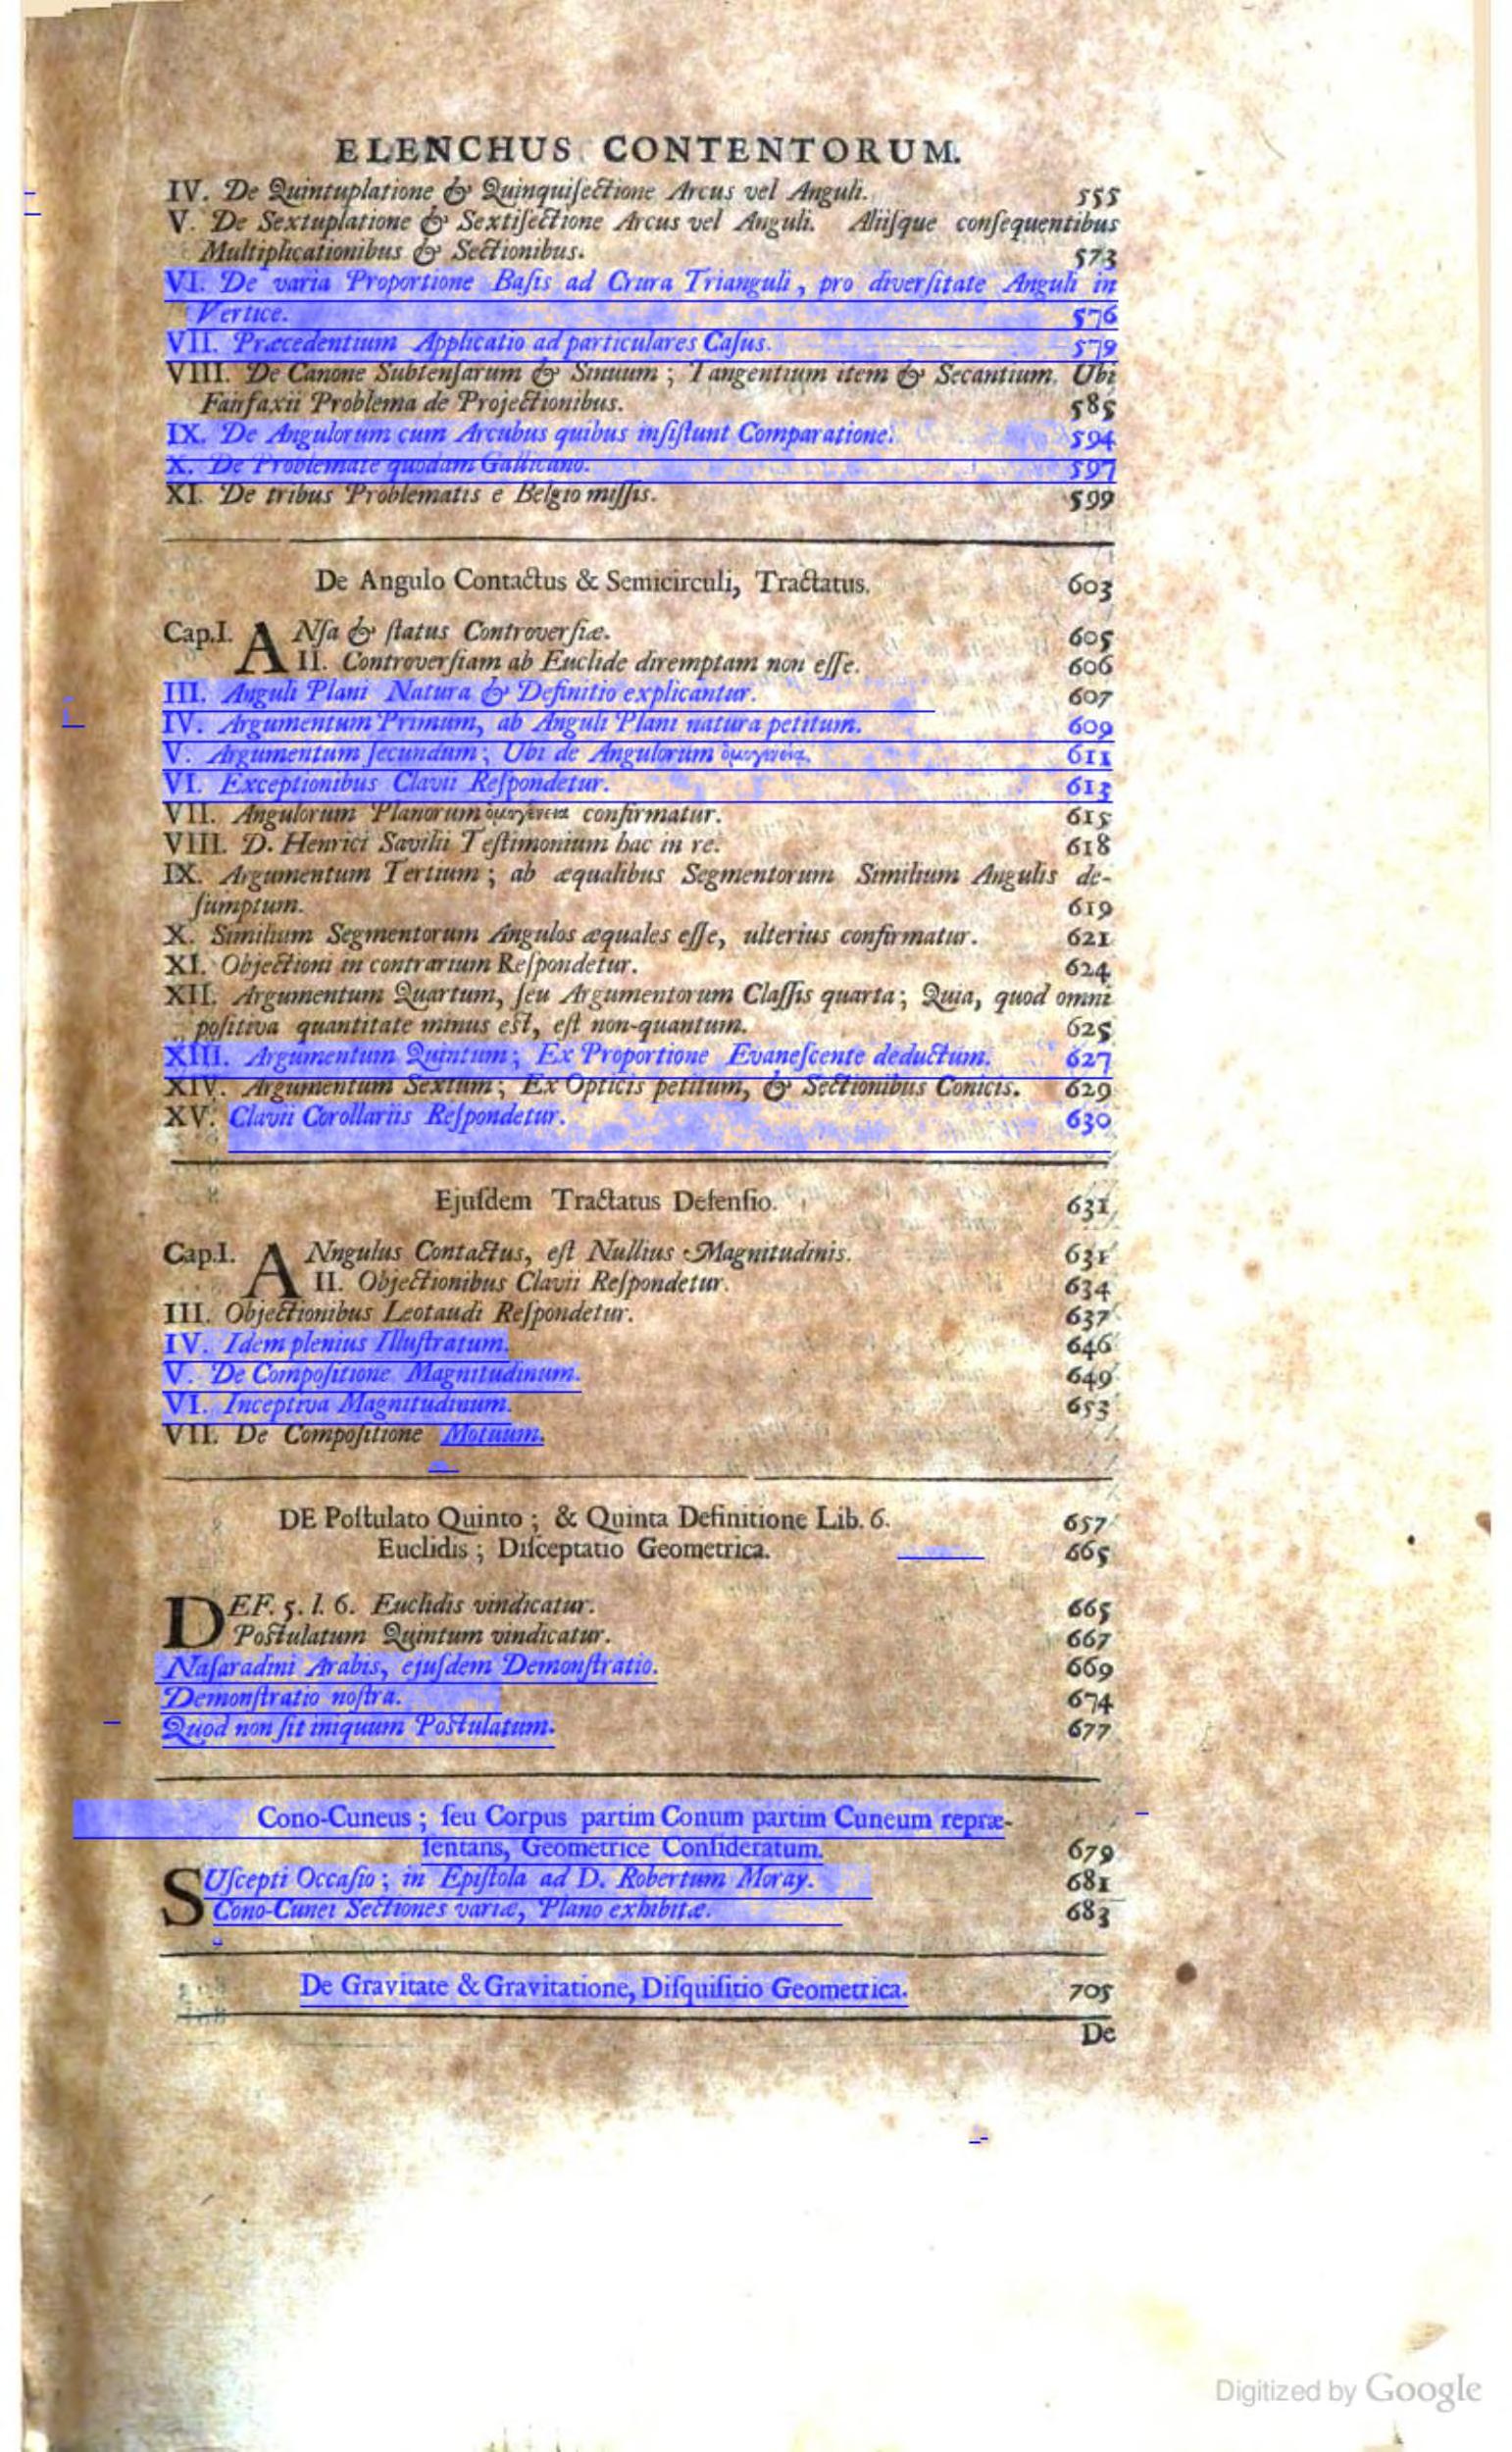 ELENCHUS CONTENTORUM.
IV. De Quintuplatione & Quinquiſectione Arcus vel Anguli. 555
V. De Sextuplatione & Sextiſectione Arcus vel Anguli. Aliiſque conſequentibus
Multiplicationibus & Sectionibus. 573
VI. De varia Proportione Baſis ad Crura Trianguli, pro diverſitate Anguli in
Vertice. 576
VII. Præcedentium Applicatio ad particulares Caſus. 579
VIII. De Canone Subtenſarum & Sinuum; Tangentium item & Secantium. Ubi
Fairfaxii Problema de Projectionibus. 585
IX. De Angulorum cum Arcubus quibus inſiſtunt Comparatione. 594
X. De Problemate quodam Gallicano. 597
XI. De tribus Problematis e Belgio miſſis. 599
De Angulo Contactus & Semicirculi, Tractatus. 603
Cap.I. ANſa & ſtatus Controverſiæ. 605
II. Controverſiam ab Euclide diremptam non eſſe. 606
III. Anguli Plani Natura & Definitio explicantur. 607
IV. Argumentum Primum, ab Anguli Plani natura petitum. 609
V. Argumentum ſecundum; Ubi de Angulorum 611
VI. Exceptionibus Clavii Reſpondetur. 613
VII. Angulorum Planorum confirmatur. 615
VIII. D. Henrici Savilii Teſtimonium hac in re. 618
IX. Argumentum Tertium; ab æqualibus Segmentorum Similium Angulis de-
ſumptum. 619
X. Similium Segmentorum Angulos æquales eſſe, ulterius confirmatur. 621
XI. Objectioni in contrarium Reſpondetur. 624
XII. Argumentum Quartum, ſeu Argumentorum Claſſis quarta; Quia, quod omni
poſitiva quantitate minus est, eſt non-quantum. 625
XIII. Argumentum Quintum; Ex Proportione Evaneſcente deductum. 627
XIV. Argumentum Sextum; Ex Opticis petitum, & Sectionibus Conicis. 629
XV. Clavii Corollariis Reſpondetur. 630
Ejuſdem Tractatus Defenſio. 631
Cap.I. ANngulus Contactus, eſt Nullius Magnitudinis. 631
II. Objectionibus Clavii Reſpondetur. 634
III. Objectionibus Leotaudi Reſpondetur. 637
IV. Idem plenius Illuſtratum. 646
V. De Compoſitione Magnitudinum. 649
VI. Inceptiva Magnitudinum. 653
VII. De Compoſitione Motuum.
DE Poſtulato Quinto; & Quinta Definitione Lib. 6. 657
Euclidis; Diſceptatio Geometrica. 665
DEF. 5. l. 6. Euclidis vindicatur. 665
Poſtulatum Quintum vindicatur. 667
Naſaradini Arabis, ejuſdem Demonſtratio. 669
Demonſtratio noſtra. 674
Quod non ſit iniquum Poſtulatum. 677
Cono-Cuneus; ſeu Corpus partim Conum partim Cuneum repræ-
ſentans, Geometrice Conſideratum. 679
SUſcepti Occaſio; in Epiſtola ad D. Robertum Moray. 681
Cono-Cunei Sectiones variæ, Plano exhibitæ. 683
De Gravitate & Gravitatione, Diſquiſitio Geometrica. 705
De
Digitized by Google